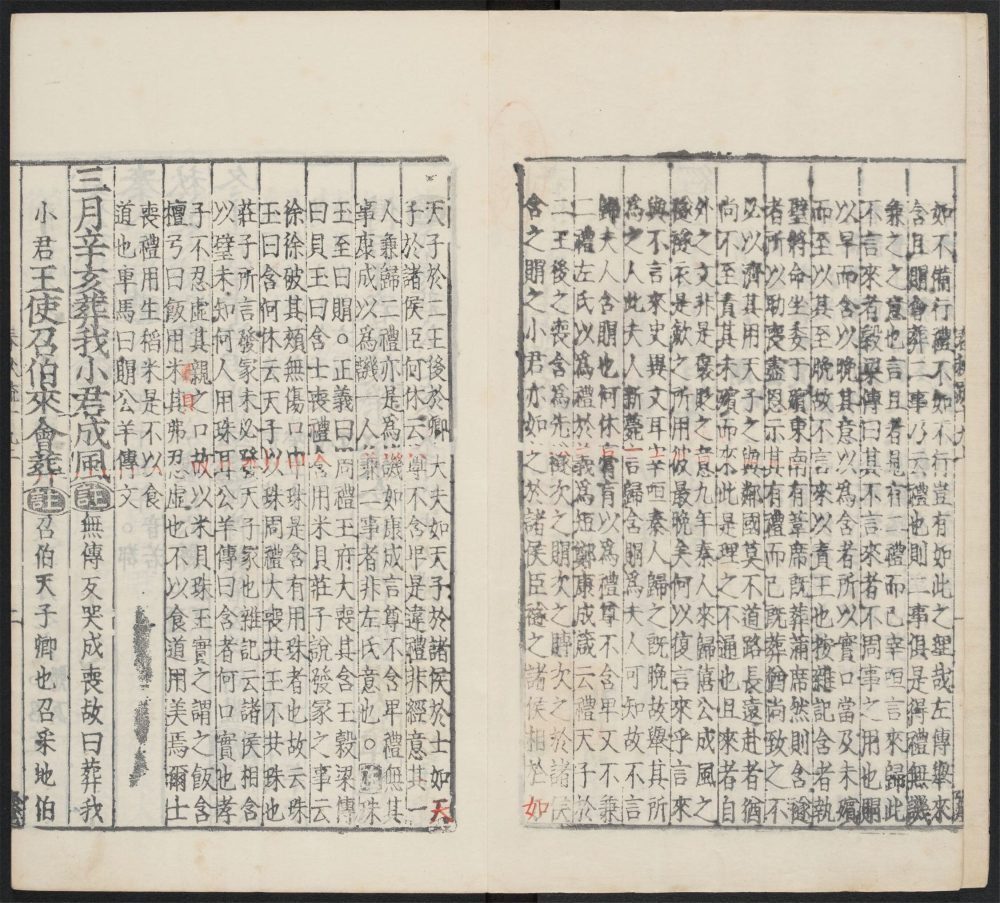 如不備行禮不如不行豈有如此之理哉左傳舉來
含且賵會葬二事乃云禮也則二事俱是得禮無譏
兼之之意也言且者見有二禮而已宰咺言來歸此
不言來者穀梁傳曰其不言來者不周事之用也賵
以早而含以晚其意以為含者所以實口當及未殯
而至以其至晚故不言來以責王也按雜記含者執
璧將命坐委于殯東南有葦席既葬蒲席然則含襚
者所以助喪盡恩示其有禮而已既葬猶尚致之不
必以濟其用天子之與鄰國莫不道路長遠赴者猶
尚不至責其未殯而來此是理之不通也且來者自
外之文非是褒貶之意九年秦人來歸僖公成風之
襚襚示是斂之所用彼最晚矣何以復言來乎言來
與不言來史異文耳宰咺秦人歸之既晚故舉其所
為之人此夫人新薨言歸含賵為夫人可知故不言
歸夫人含賵也何休膏肓以為禮尊不含卑又不兼
二禮左氏以為禮於義為短鄭康成箴云禮天子於
二王後之喪含為先襚次之賵次之賻次之於諸侯
含之賵之小君亦如之於諸侯臣襚之諸侯相於如
天子於二王後於卿大夫如天子於諸侯於士如天
子於諸侯臣何休云尊不含卑是違禮非經意其一
人兼歸二禮亦是為譏如康成言尊不含卑禮無其
事康成以為譏一人兼二事者非左氏意也。注珠
玉至曰賵。正義曰周禮玉府大喪共含玉穀梁傳
曰貝玉曰含士喪禮含用米貝莊子說發冢之事云
徐徐破其頰無傷口中珠是含有用珠者也故云珠
玉曰含何休云天子以珠周禮大喪共玉不共珠也
莊子所言發冢未必發天子冢也雜記云諸侯相含
以璧未知何人用珠耳公羊傳曰含者何口實也孝
子不忍虛其親之口故以米貝珠玉實之謂之飯含
檀弓曰飯用米其弗忍虛也不以食道用美焉爾士
喪禮用生稻米是不以食
道也車馬曰賵公羊傳文
三月辛亥葬我小君成風註無傳反哭成喪故曰葬我
小君王使召伯來會葬註召伯天子卿也召采地伯